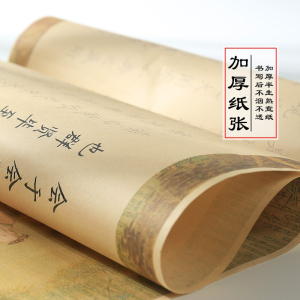 加厚纸张
加厚半生熟宣纸
书写后不洇不透
会于会
也群贤毕至